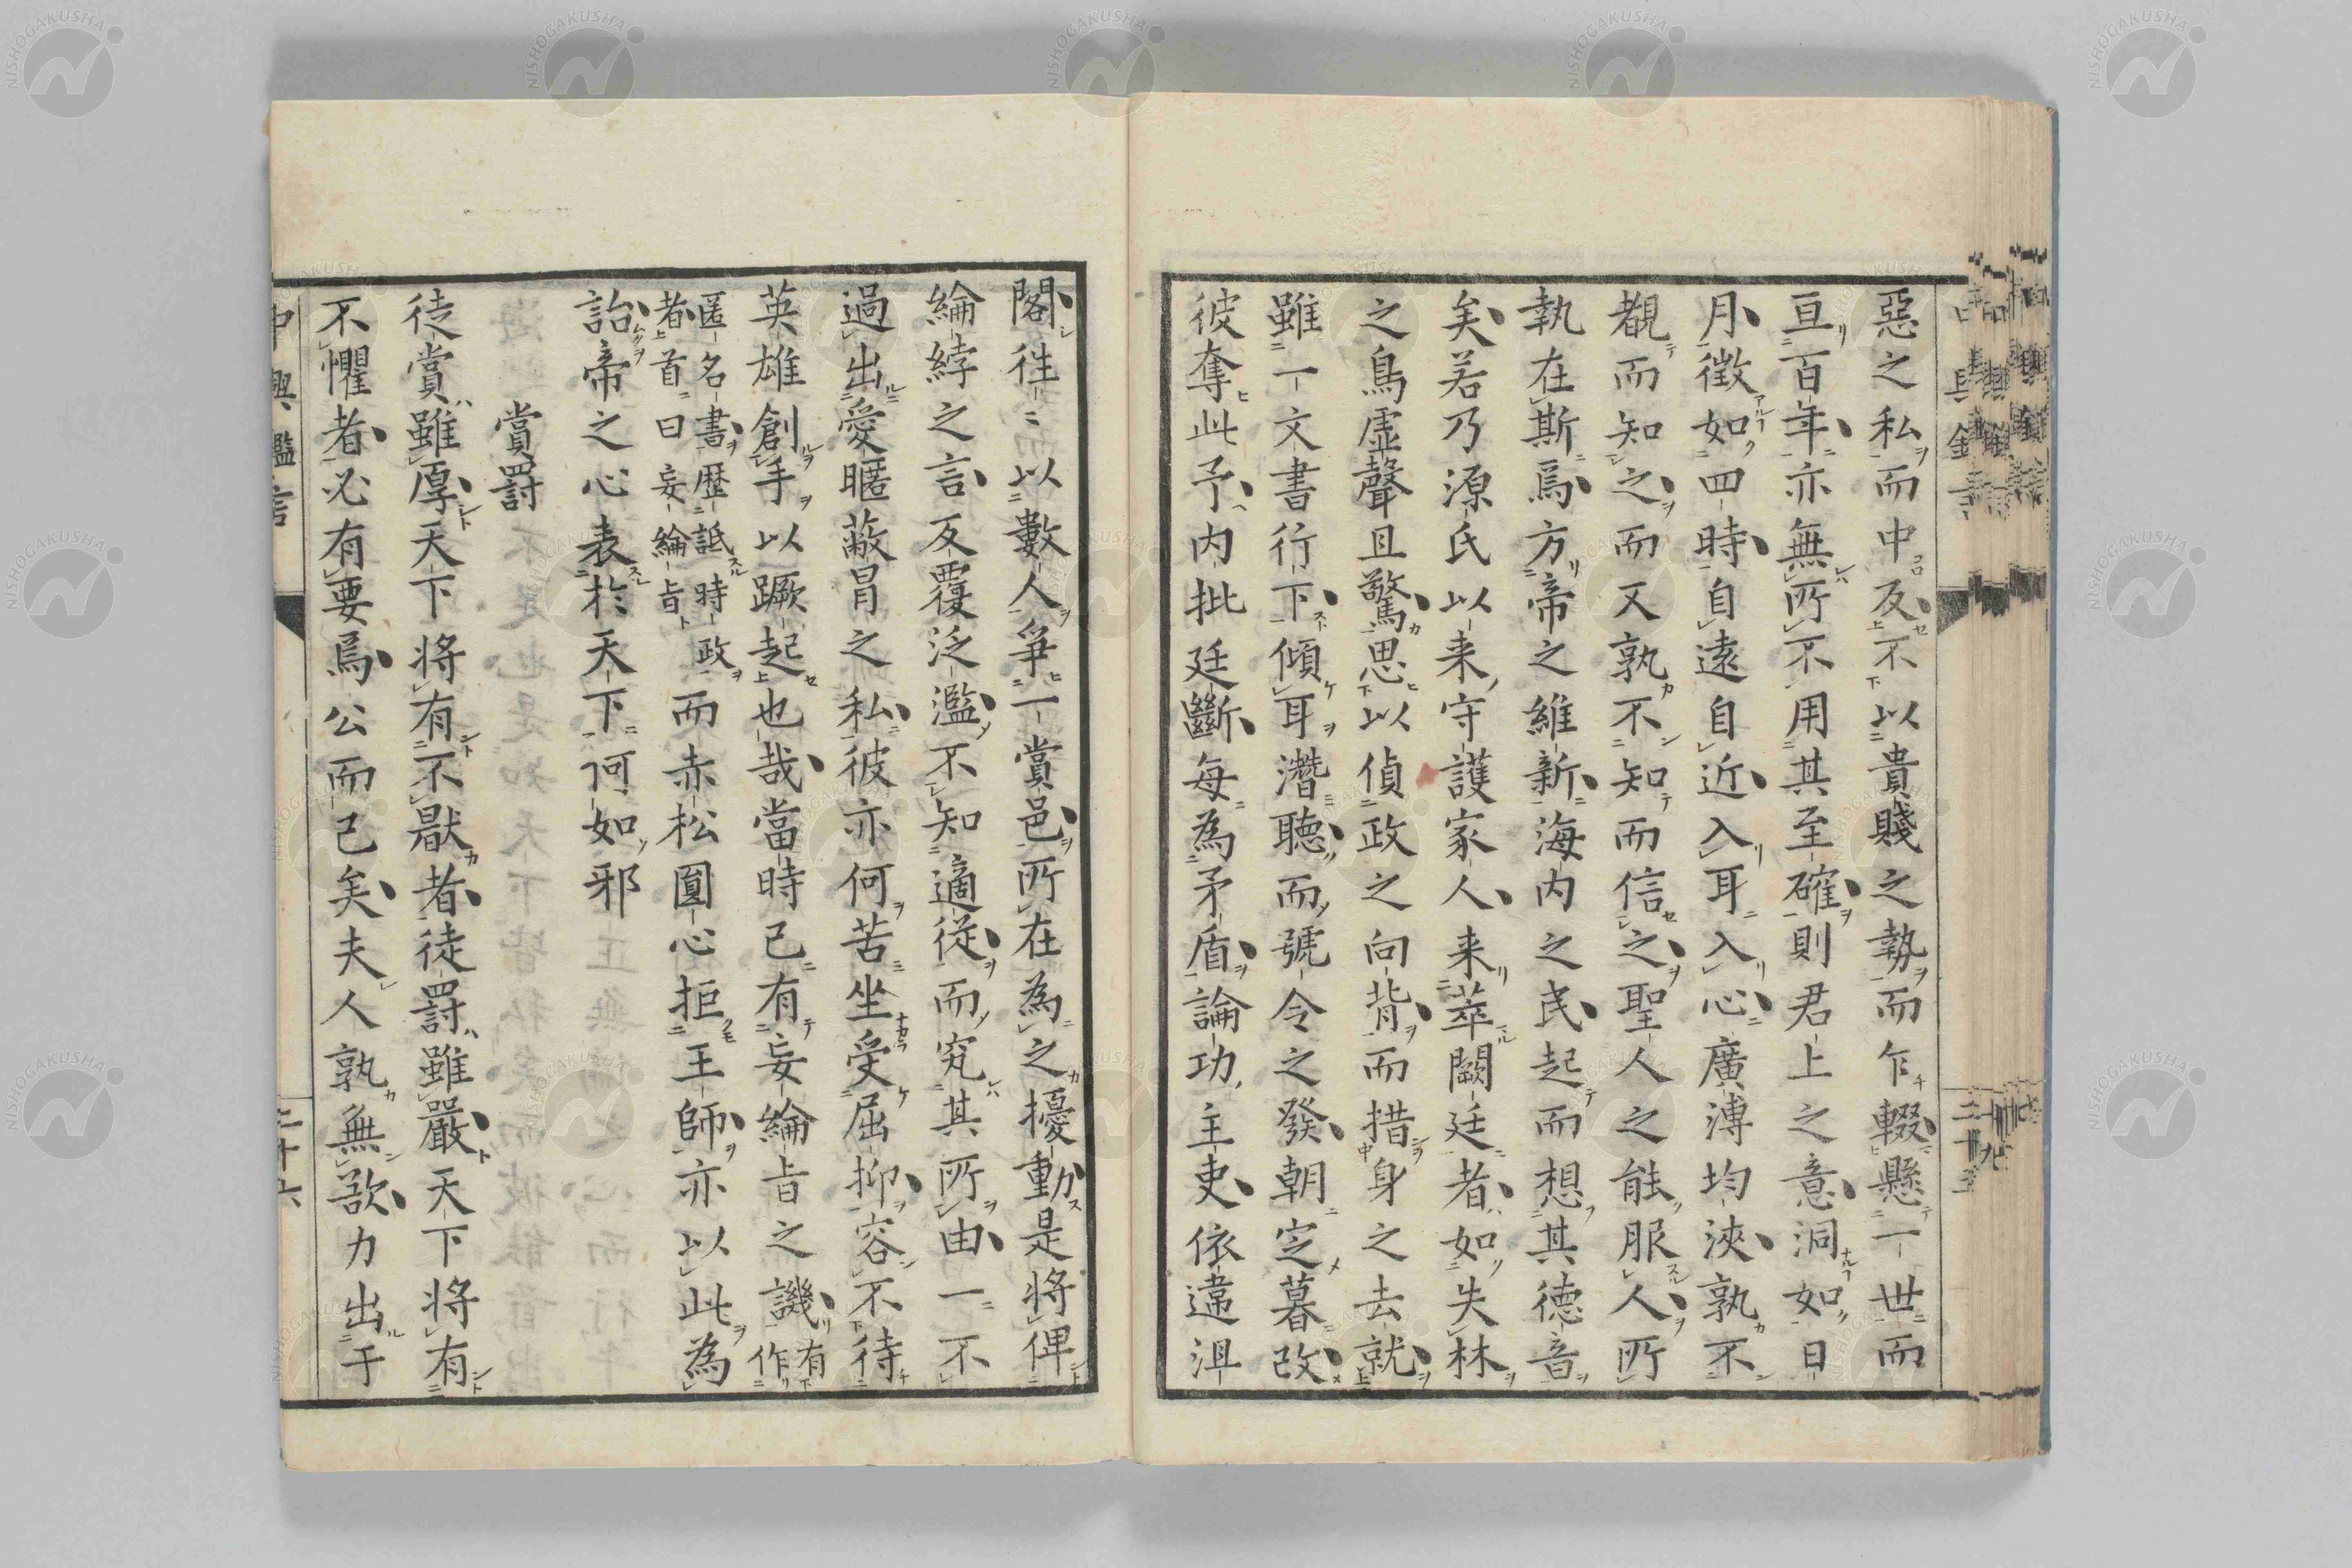 惡之私而中反不以貴賤之勢而乍輟懸一世而
亘百年亦無所不用其至確則君上之意洞如日
月徵如四時自遠自近入耳入心廣溥均浹孰不
覩而知之而又孰不知而信之聖人之能服人所
執在斯焉方帝之維新海内之民起而想其德音
矣若乃源氏以来守護家人来萃闕廷者如失林
之鳥虛聲且驚思以偵政之向背而措身之去就
雖一文書行下傾耳潛聽而號令之發朝定暮改
彼奪此予内批廷斷每為矛盾論功主吏依違沮
閣往〻以數人爭一賞邑所在為之擾動是將俾
綸綍之言反覆泛濫不知適從而究其所由一不
過出愛暱蔽冒之私彼亦何苦坐受屈抑容不待
英雄創手以蹶起也哉當時已有妄綸旨之譏有作
匿名書歷詆時政者首曰妄綸旨而赤松圓心拒王師亦以此為
詒帝之心表於天下何如邪
賞罰
徒賞雖厚天下将有不厭者徒罰雖嚴天下将有
不懼者必有要焉公而已矣夫人孰無欲力出于
中興鑑言
二十六